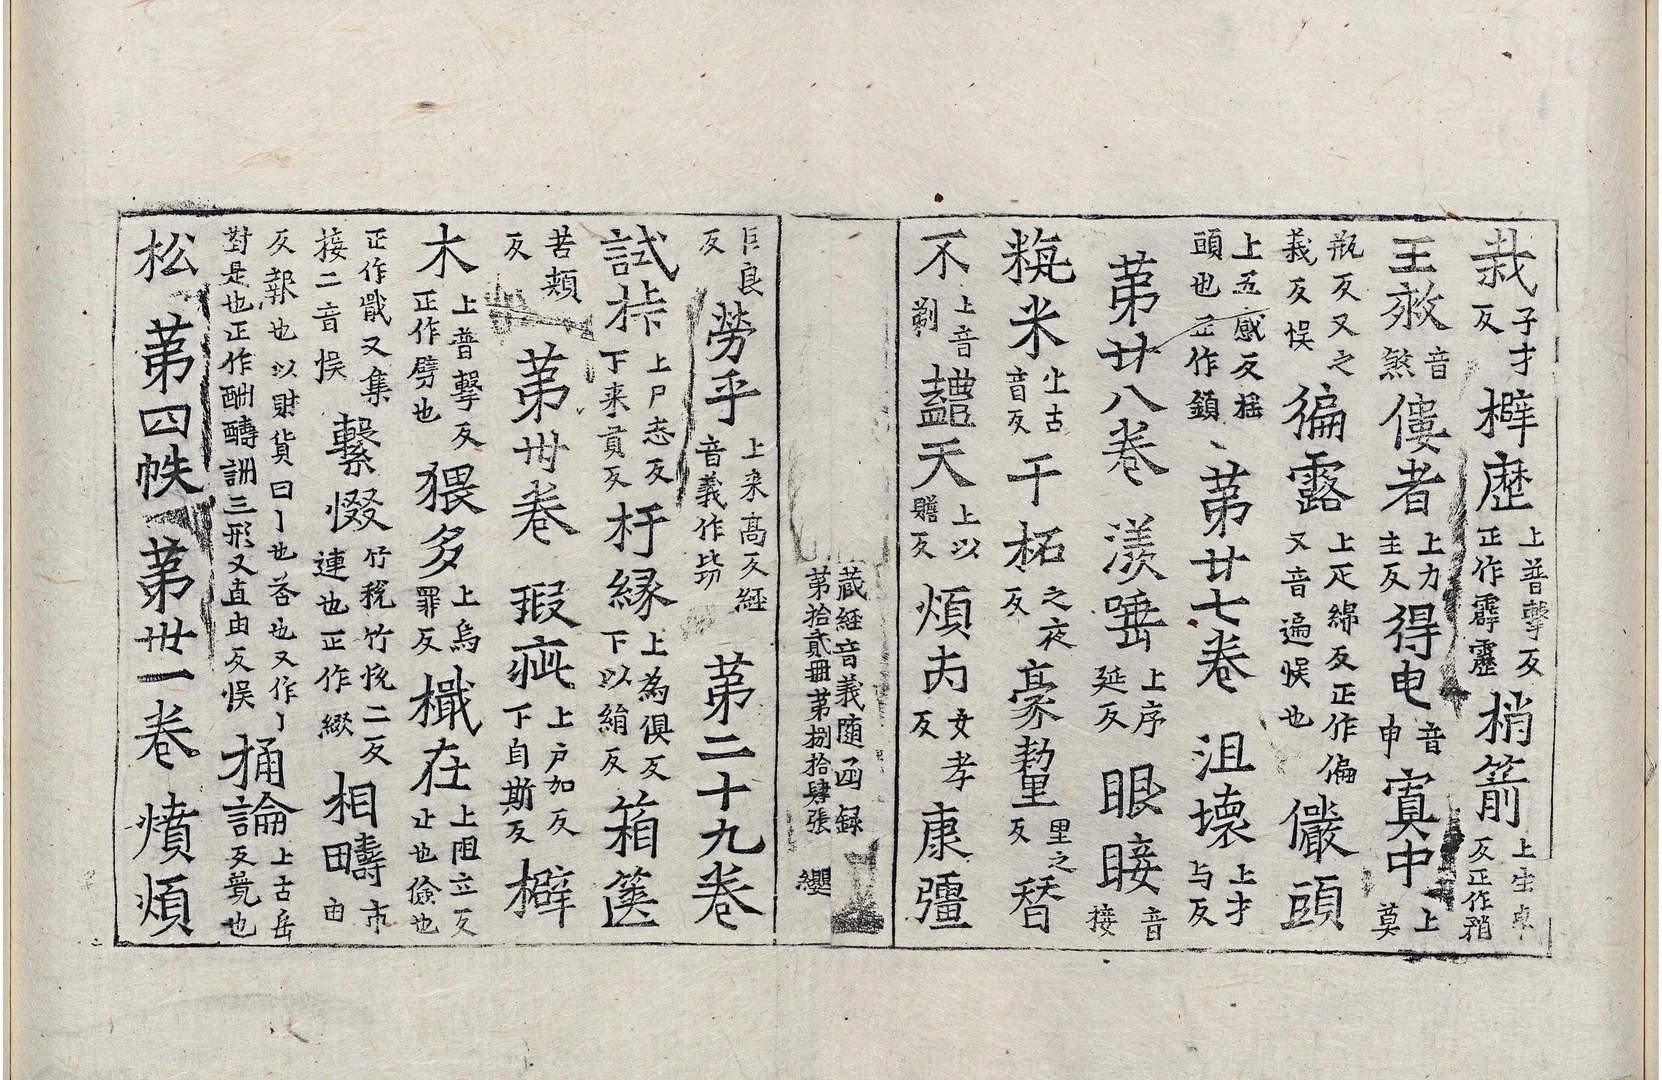 哉子才反擗歷上普擊反正作霹靂梢箭上生皃反正作䂎
王敓音煞僂者上力主反得电音申寘中上莫
瓶反又之義反悮徧露上疋綿反正作偏又音遍悮也儼頭
上五感反摇頭也正作顉第廿七卷沮壞上才与反
第廿八卷羡唾上序延反眼䀹音接
粇米上古音反干柘之夜反豪𨤲里之反朁
不上音剃䜝天上以贍反煩㐫女孝反康彊
藏經音義隨函録第拾貳冊第捌拾肆張纓
巨良反勞乎上来高反經音義作𢫦第二十九卷
試㧊上尸志反下来貢反杅緣上為俱反下以絹反箱篋
苦頰反第卅卷瑕疵上户加反下自斯反擗
木上普擊反正作劈也猥多上烏罪反櫼在上阻立反止也儉也
正作戢又集接二音悮繫惙竹稅竹恱二反連也正作綴相疇市由
反報也以財貨曰丨也荅也又作丨對是也正作酬醻詶三形又直由反悮捔論上古岳反競也
松第四帙第卅一卷憤煩